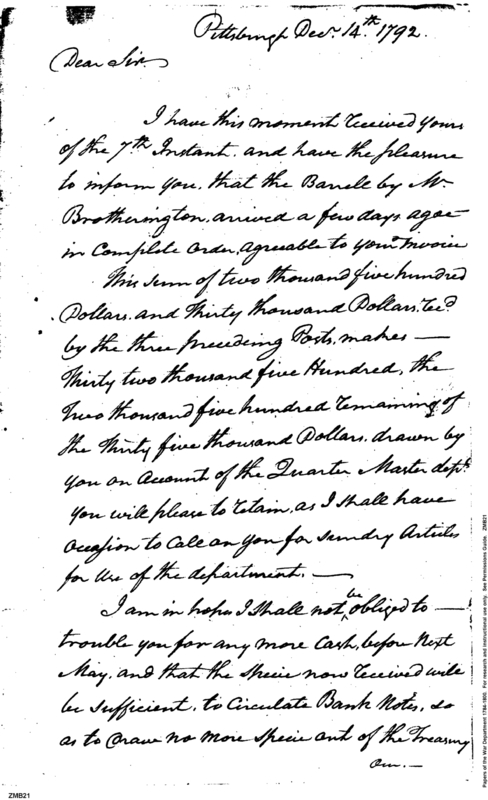 Pittsburgh Decr. 14th. 1792.
Dear Sir
I have this moment received yours
of the 7th Instant. and have the pleasure
to inform you, that the Barrell by Mr
Brotherington, arrived a few days agoe
in Complete order, agreable to your Invoice
This sum of two thousand five hundred
Dollars, and Thirty thousand Dollars, Recd
by the three preceding Posts, makes —
Thirty two thousand five Hundred, the
Two thousand five hundred remaining of
the Thirty five thousand Dollars. drawn by
you on Account of the Quarter Master dept.
you will please to retain, as I shall have
occasion to Call on you for sundry Articles
for Use of the department. —
I am in hopes I shall not be obliged to —
trouble you for any more Cash, before Next
May, and that the Specie now received will
be sufficient, to Circulate Bank Notes, so
as to crave no more specie out of the Treasury
our. —
ZMB21
Papers of the War Department 1784-1800 For research and instructional use only. See Permissions Guide. ZMB21